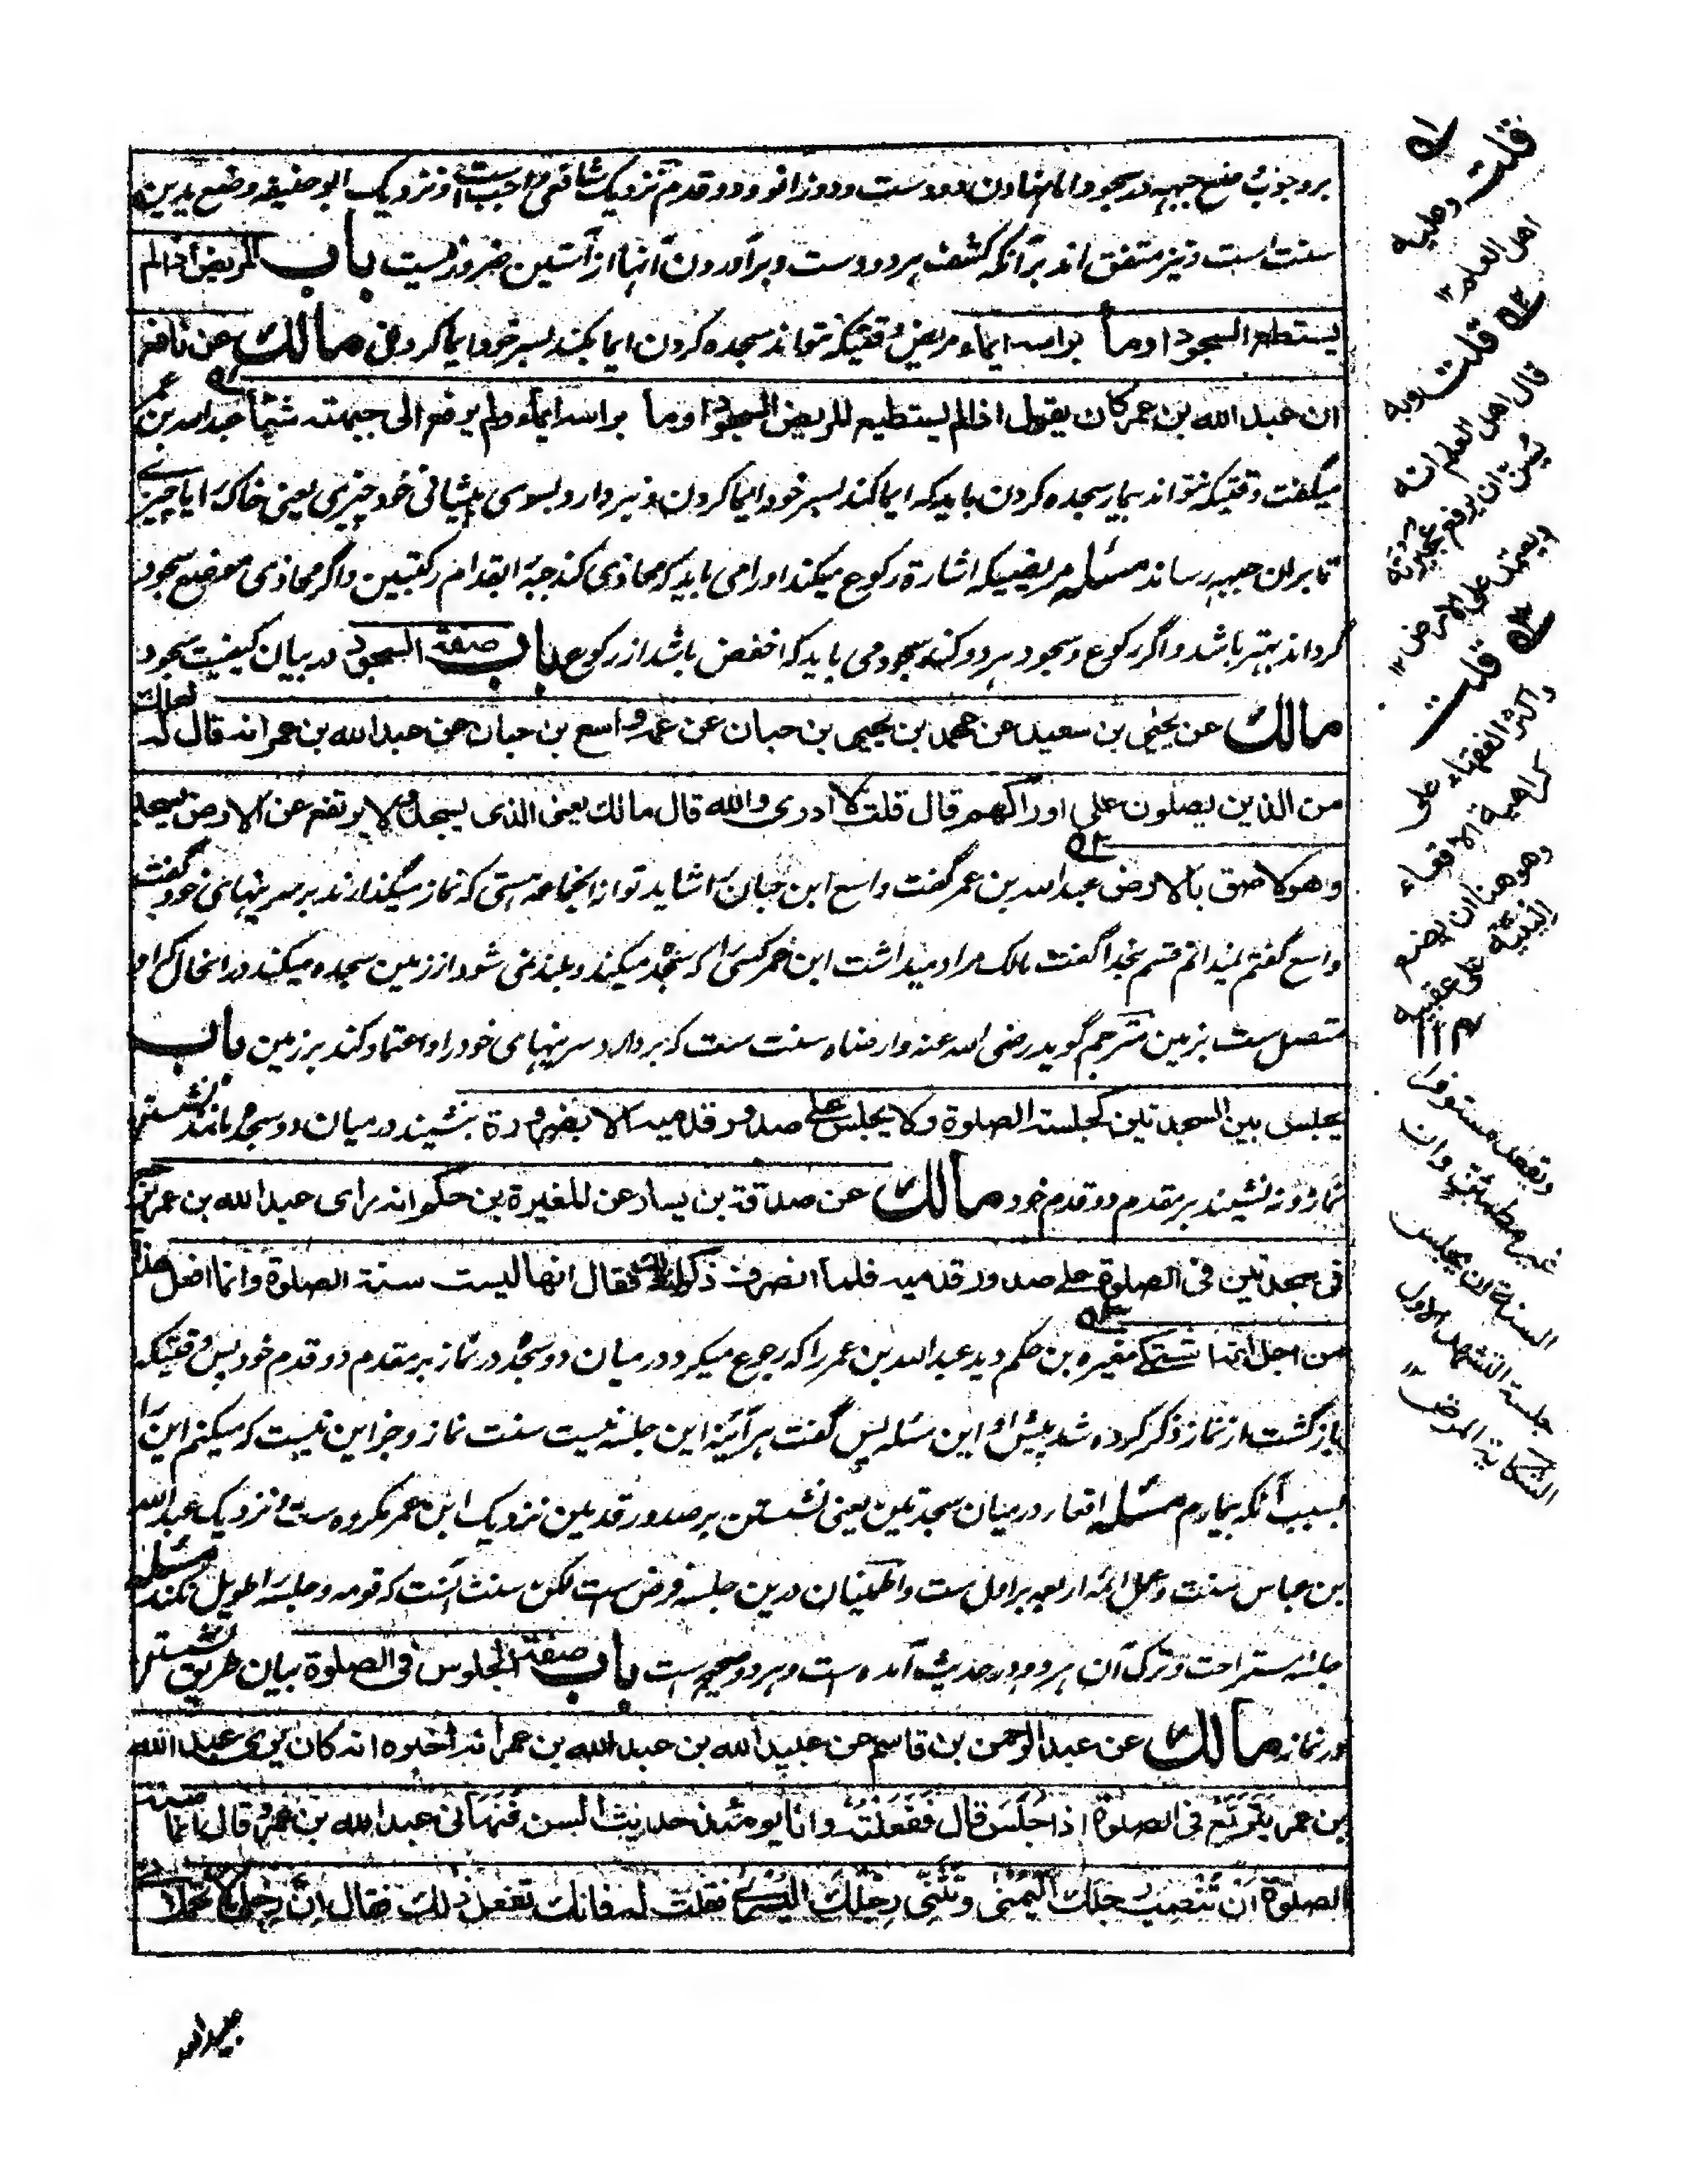 بر وجوب وضع جبهه در سجود اما نهادن دو دست و دو زانو و دو قدم نزدیک شافعی واجب است و نزدیک ابو حنیفه وضع یدین
سنت است و نیز متفق اند بر آنکه کشف هر دو دست و برآوردن آنها از آستین ضرور نیست باب المریض اذا لم
یستطع السجود اومأ براسه ایماء مریض وقتیکه نتواند سجده کردن ایما بکند بسر خود ایما کردنی مالك عن نافع
ان عبد الله بن عمر كان يقول اذا لم يستطيع المريض السجود اومأ براسه ايماء ولم يرفع الى جبهته شيئا عبد الله بن عمر
میگفت وقتیکه نتواند بیمار سجده کردن باید که ایما کند بسر خود ایما کردن و نبردارد بسوی پیشانی خود چیزی یعنی خاک یا چیزی
تا بران جبهه رساند مسئله مریضیکه اشارة رکوع میکند او را می باید که محاذی کند جبهه بقدام رکبتین و اگر محاذی موضع سجود
گرداند بهتر باشد و اگر رکوع و سجود هر دو کند سجود می باید که اخفض باشد از رکوع باب صفة السجود در بیان کیفیت سجود
مالك عن يحيى بن سعيد عن محمد بن يحيى بن حبان عن عمه واسع بن حبان عن عبد الله بن عمر انه قال له لعلك
من الذين يصلون على اوراكهم قال قلت لا ادرى والله قال مالك يعنى الذى يسجد ولا يرتفع عن الارض يسجد
وهو لاصق بالارض عبد الله بن عمر گفت واسع ابن حبان را شاید تو از انجماعه هستی که نماز میگذارند بر سرینهای خود گفت
واسع گفتم نمیدانم قسم بخدا گفت مالک مراد میداشت ابن عمر کسی را که سجده میکند و بلند نمی شود از زمین سجده میکند در انحال که او
متصل ست بزمین مترجم گوید رضی الله عنه وارضاه سنت ست که بردارد سرینهای خود را و اعتماد کند بر زمین باب
يجلس بين السجدتين كجلسة الصلوة ولا يجلس على صدور قدميه الا بضرورة بنشیند در میان دو سجده مانند نشستن
نماز و نه نشیند بر مقدم دو قدم خود مالك عن صدقة بن يسار عن المغيرة بن حكم انه راى عبد الله بن عمر يرجع
فى سجدتين فى الصلوة على صدور قدميه فلما انصرف ذكر له ذلك فقال انها ليست سنة الصلوة وانما افعل هذا
من اجل انى اشتكى مغیره بن حکم دید عبد الله بن عمر را که رجوع میکرد در میان دو سجده در نماز بر مقدم دو قدم خود پس وقتیکه
بازگشت از نماز ذکر کرده شد پیش او این مسئله پس گفت هر آئینه این جلسه نیست سنت نماز و جز این نیست که میکنم این را
بسبب آنکه بیمارم مسئله اقعاء در میان سجدتین یعنی نشستن بر صدور قدمین نزدیک ابن عمر مکروه ست و نزدیک عبد الله
بن عباس سنت و عمل ائمه اربعه بر اول ست و اطمینان درین جلسه فرض ست لکن سنت آنست که قومه و جلسه را طویل نکند مسئله
جلسه استراحت و ترک آن هر دو در حدیث آمده ست و هر دو صحیح ست باب صفة الجلوس فى الصلوة بیان طریق نشستن
در نماز مالك عن عبد الرحمن بن قاسم عن عبيد الله بن عبد الله بن عمر انه اخبره انه كان يرى عبد الله
بن عمر يَتَرَبَّع فى الصلوة اذا جَلَسَ قال فَفَعَلْتُه وانا يومئذ حديث السن فَنَهَانى عبد الله بن عمر وقال انما سنة
الصلوة اَنْ تَنْصِبَ رجلك اليُمنى وتَثْنِى رِجْلَكَ اليُسْرى فقلت له فانك تفعل ذلك فقال اِنَّ رِجْلَىَّ لا تحملانى
قلت وعليه
اهل العلم ١٢
قلت وبه
قال اهل العلم انه
يسن ان يرفع عجيزته
ويعتمد على الارض ١٢
قلت
واكثر الفقهاء على
كراهية الاقعاء
وهو هنا ان يضع
اليتيه على عقبيه
ويقعد مستوفزا
غير مطمئن وان
السنة ان يجلس
جلسة التشهد الاول
لشكاية المرض ١٢